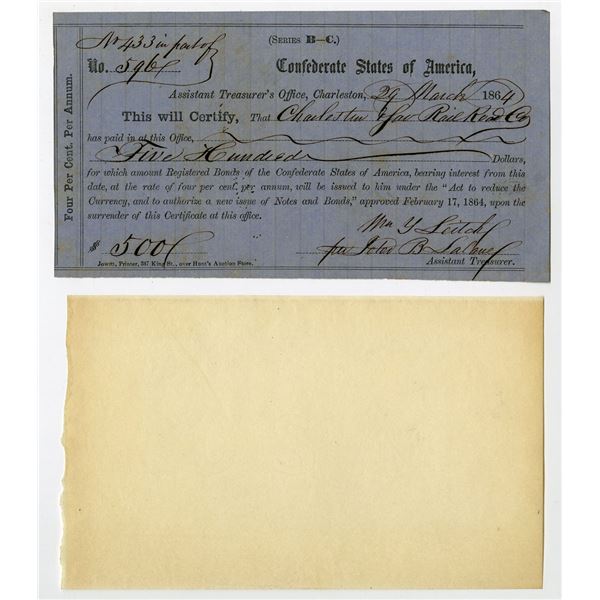 No 433 in part of
No. 596
(SERIES B—C.)
Confederate States of America,
Assistant Treasurer's Office, Charleston, 29 March 1864
This will Certify, That Charleston & Sav Rail Road Co
has paid in at this Office,
Five Hundred Dollars,
for which amount Registered Bonds of the Confederate States of America, bearing interest from this
date, at the rate of four per cent. per annum, will be issued to him under the "Act to reduce the
Currency, and to authorize a new issue of Notes and Bonds," approved February 17, 1864, upon the
surrender of this Certificate at this office.
$ 500
Wm Y Leitch
for John B
Assistant Treasurer.
Jowitt, Printer, 317 King St., over Hunt's Auction Store.
Four Per Cent. Per Annum.